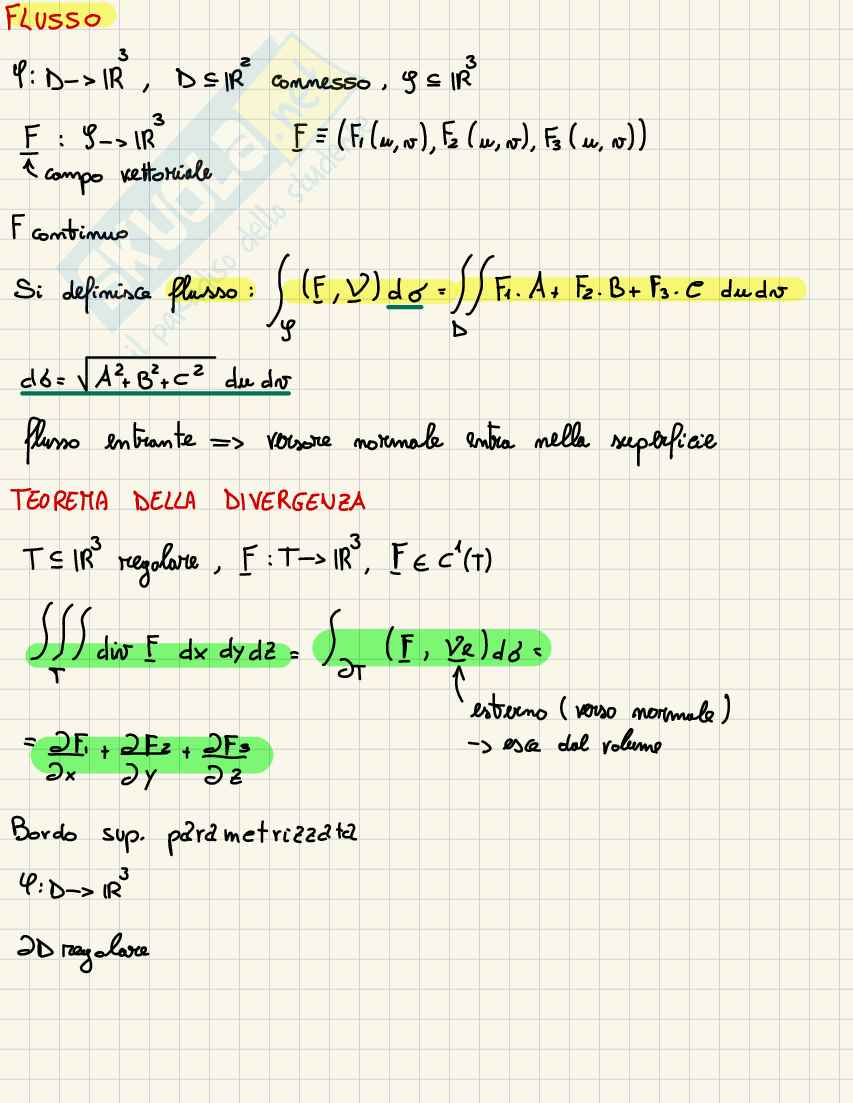 FLUSSO
φ: D -> ℝ³, D ⊆ ℝ² connesso, φ ⊆ ℝ³
F : φ -> ℝ³ F ≡ (F₁(u,v), F₂(u,v), F₃(u,v))
↑ campo vettoriale
F continuo
Si definisce flusso: ∫_φ (F, ν) dσ = ∬_D F₁·A + F₂·B + F₃·C du dv
dσ = √(A² + B² + C²) du dv
flusso entrante => versore normale entra nella superficie
TEOREMA DELLA DIVERGENZA
T ⊆ ℝ³ regolare, F : T -> ℝ³, F ∈ C¹(T)
∭_T div F dx dy dz = ∫_∂T (F, νe) dσ =
esterno (verso normale)
-> esce dal volume
= ∂F₁/∂x + ∂F₂/∂y + ∂F₃/∂z
Bordo sup. parametrizzata
φ: D -> ℝ³
∂D regolare
SKUOLA.net
il paradiso dello studente